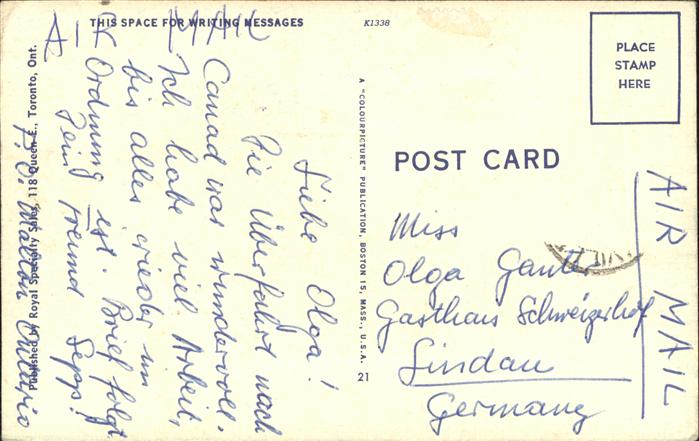 THIS SPACE FOR WRITING MESSAGES
K1338
AIR MAIL
Liebe Olga!
Die Überfahrt nach
Canad war wundervoll.
Ich habe viel Arbeit,
bis alles wieder in
Ordnung ist. Brief folgt
Dein Freund Sepp!
P.O. Ontario
Published by Royal Specialty Sales, 118 Queen E., Toronto, Ont.
A "COLOURPICTURE" PUBLICATION, BOSTON 15, MASS., U.S.A.
21
PLACE
STAMP
HERE
POST CARD
Miss
Olga Ganter
Gasthaus Schweizerhof
Lindau
Germany
AIR MAIL